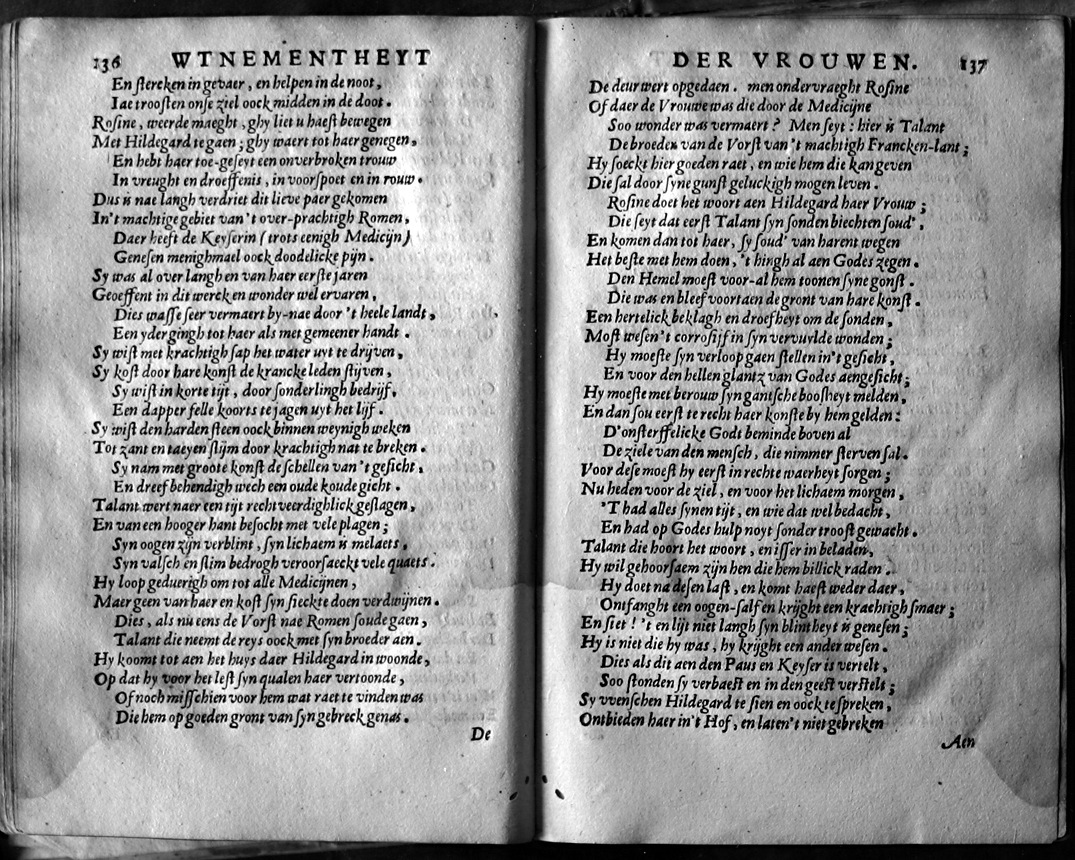 136 WTNEMENTHEYT
En stercken in gevaer, en helpen in de noot,
Iae troosten onse ziel oock midden in de doot.
Rosine, weerde maeght, ghy liet u haest bewegen
Met Hildegard te gaen; ghy waert tot haer genegen,
En hebt haer toe-geseyt een onverbroken trouw
In vreught en droeffenis, in voorspoet en in rouw.
Dus is nae langh verdriet dit lieve paer gekomen
In't machtige gebiet van 't over-prachtigh Romen,
Daer heeft de Keyserin (trots eenigh Medicijn)
Genesen menighmael oock doodelicke pijn.
Sy was al over langh en van haer eerste jaren
Geoeffent in dit werck en wonder wel ervaren,
Dies wasse seer vermaert by-nae door 't heele landt,
Een yder gingh tot haer als met gemeener handt.
Sy wist met krachtigh sap het water uyt te drijven,
Sy kost door hare konst de krancke leden stijven,
Sy wist in korte tijt, door sonderlingh bedrijf,
Een dapper felle koorts te jagen uyt het lijf.
Sy wist den harden steen oock binnen weynigh weken
Tot zant en taeyen slijm door krachtigh nat te breken.
Sy nam met groote konst de schellen van 't gesicht,
En dreef behendigh wech een oude koude gicht.
Talant wert naer een tijt rechtveerdighlick geslagen,
En van een hooger hant besocht met vele plagen;
Syn oogen zijn verblint, syn lichaem is melaets,
Syn valsch en slim bedrogh veroorsaeckt vele quaets.
Hy loop geduerigh om tot alle Medicijnen,
Maer geen van haer en kost syn sieckte doen verdwijnen.
Dies, als nu eens de Vorst nae Romen soude gaen,
Talant die neemt de reys oock met syn broeder aen.
Hy koomt tot aen het huys daer Hildegard in woonde,
Op dat hy voor het lest syn qualen haer vertoonde,
Of noch misschien voor hem wat raet te vinden was
Die hem op goeden gront van syn gebreck genas.
De
DER VROUWEN. 137
De deur wert opgedaen. men ondervraeght Rosine
Of daer de Vrouwe was die door de Medicijne
Soo wonder was vermaert? Men seyt: hier is Talant
De broeder van de Vorst van 't machtigh Francken-lant;
Hy soeckt hier goeden raet, en wie hem die kan geven
Die sal door syne gunst geluckigh mogen leven.
Rosine doet het woort aen Hildegard haer Vrouw;
Die seyt dat eerst Talant syn sonden biechten soud',
En komen dan tot haer, sy soud' van harent wegen
Het beste met hem doen, 't hingh al aen Godes zegen.
Den Hemel moest voor-al hem toonen syne gonst.
Die was en bleef voortaen de gront van hare konst.
Een hertelick beklagh en droefheyt om de sonden,
Most wesen 't corrosijf in syn vervuylde wonden;
Hy moeste syn verloop gaen stellen in't gesicht,
En voor den hellen glantz van Godes aengesicht;
Hy moeste met berouw syn gantsche boosheyt melden,
En dan sou eerst te recht haer konste by hem gelden:
D'onsterffelicke Godt beminde boven al
De ziele van den mensch, die nimmer sterven sal.
Voor dese moest hy eerst in rechte waerheyt sorgen;
Nu heden voor de ziel, en voor het lichaem morgen,
'T had alles synen tijt, en wie dat wel bedacht,
En had op Godes hulp noyt sonder troost gewacht.
Talant die hoort het woort, en isser in beladen,
Hy wil gehoorsaem zijn hen die hem billick raden.
Hy doet na desen last, en komt haest weder daer,
Ontfanght een oogen-salf en krijght een krachtigh smaer;
En siet! 't en lijt niet langh syn blintheyt is genesen;
Hy is niet die hy was, hy krijght een ander wesen.
Dies als dit aen den Paus en Keyser is vertelt,
Soo stonden sy verbaest en in den geest verstelt;
Sy vvenschen Hildegard te sien en oock te spreken,
Ontbieden haer in't Hof, en laten't niet gebreken
Aen